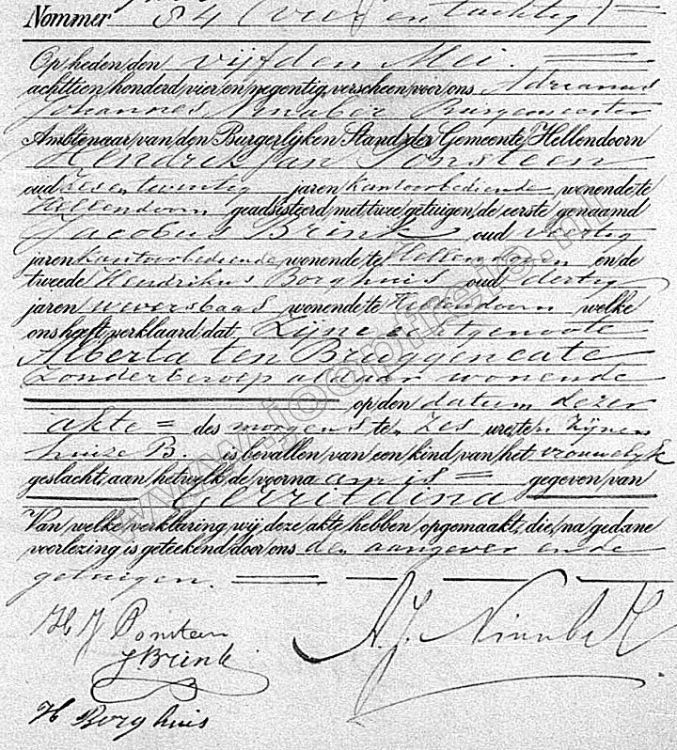 Nommer 84 (vier en tachtig)
Op heden den vijfden Mei.
achttien honderd vier en negentig, verscheen voor ons Adrianus
Johannes Burgemeester
Ambtenaar van den Burgerlijken Stand der Gemeente Hellendoorn
Hendrik Jan Ponsteen
oud zes en twintig jaren kantoorbediende wonende te
Hellendoorn geadsisteerd met twee getuigen, de eerste genaamd
Jacobus Brink oud veertig
jaren kantoorbediende wonende te Hellendoorn en de
tweede Hendrikus Borghuis oud dertig
jaren weversbaas wonende te Hellendoorn welke
ons heeft verklaard dat Zijne echtgenoote
Alberta ten Bruggencate
zonder beroep aldaar wonende
op den datum dezer
akte des morgens te zes ure, te zijnen
huize B. is bevallen van een kind van het vrouwelyk
geslacht, aan hetwelk de voornaam is gegeven van
Gerritdina
Van welke verklaring wij deze akte hebben opgemaakt, die, na gedane
voorlezing is geteekend door ons den aangever en de
getuigen.
H J Ponsteen
A. J.
J Brink
H Borghuis